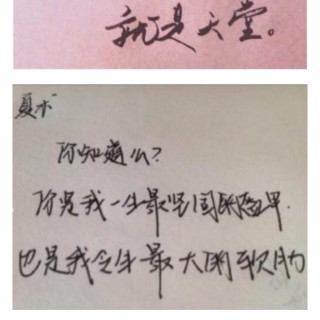 就是天堂。
夏木
你知道么?
你是我一生最坚固的盔甲.
也是我今生最大的软肋